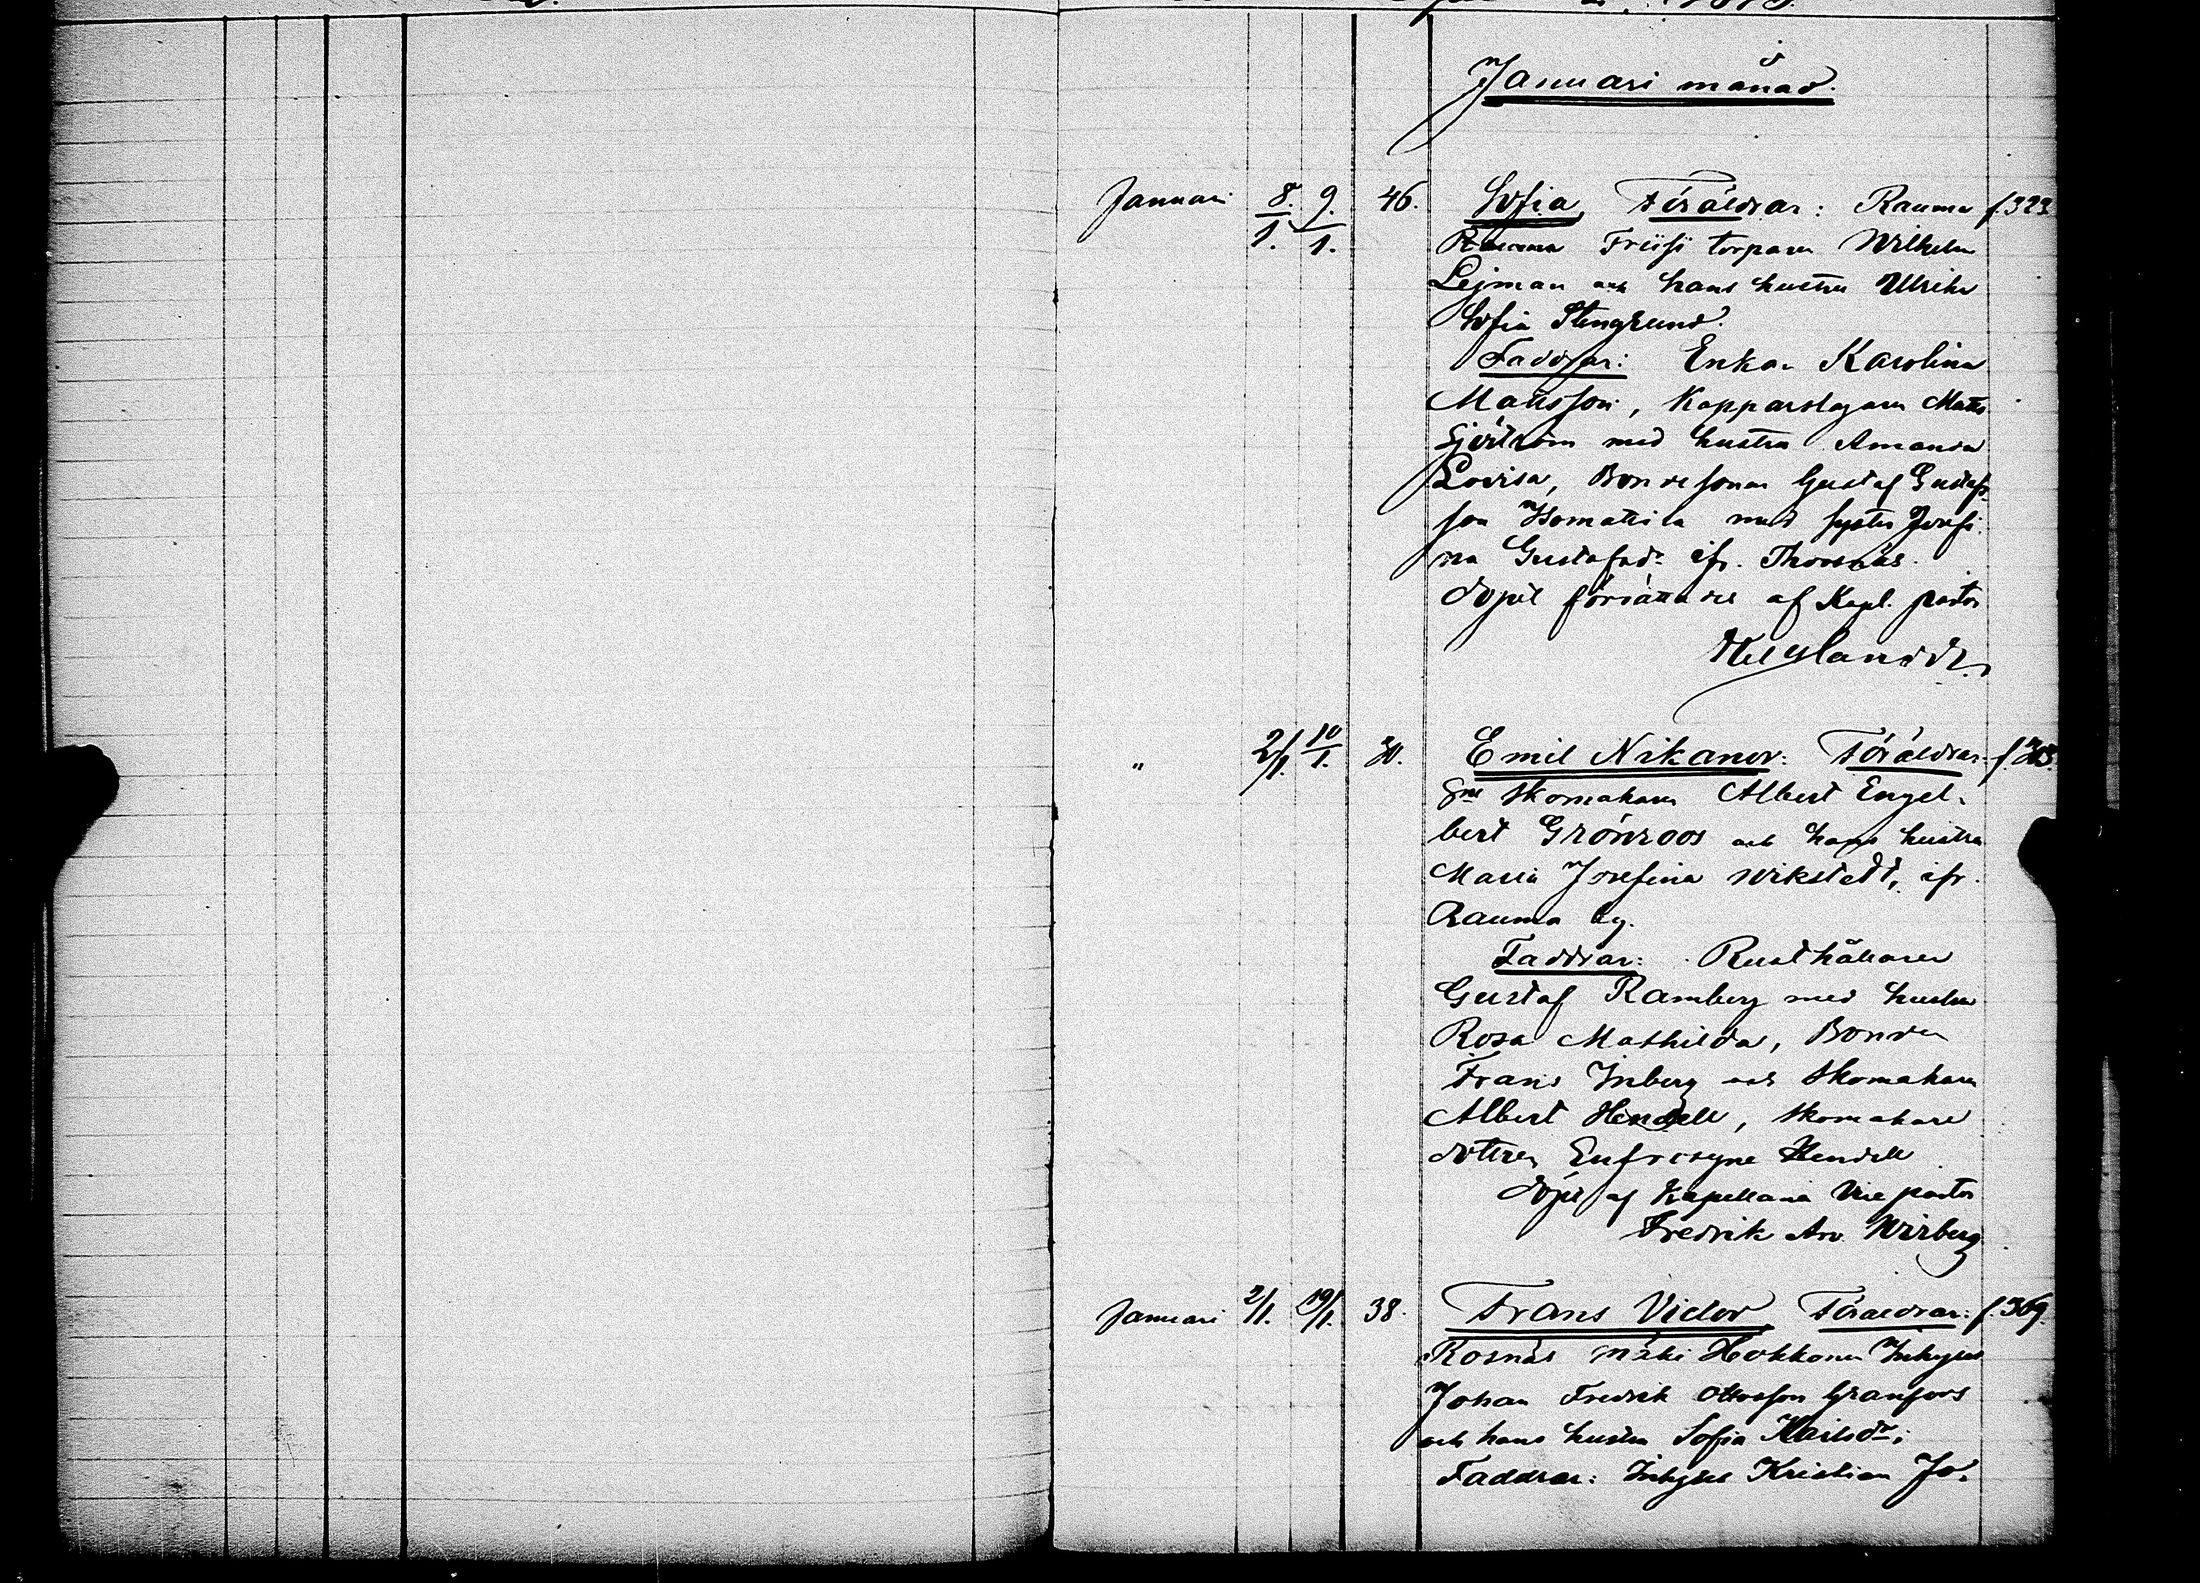 Januari månad.
Januari 8./1. 9./1. 46. Sofia, Föräldrar: Rauma f. 323
Rauma Friisi torparen Wilhelm
Lejman och hans hustru Ulrika
Sofia Stengrund.
Faddrar: Enkan Karolina
Mattsson, Kopparslagaren Matts
Sjöström med hustru Amanda
Lovisa, Bondesonen Gustaf Gustafs-
son Isomattila med syster Josefi-
na Gustafsdr ifr.
Döpt förrättades af Kapl. pastor
" 2/1. 10/1. 30. Emil Nikanor. Föräldrar: f.
Skomakaren Albert Engel-
bert Grönroos och hans hustru
Maria Josefina Wikstedt, ifr.
Rauma by.
Faddrar: Rusthållaren
Gustaf Ramberg med hustru
Rosa Mathilda, Bonden
Frans Inberg och Skomakaren
Albert Hendell, skomakare
dottren Eufrosyne Hendell
Döpt af Kapellans Vice pastor
Fredrik Arv. Wirberg
Januari 2/1. 19/1. 38. Frans Victor Föräldrar: f. 369.
Rosnäs mäki Hokkonen Inhyses
Johan Fredrik Ottosson Granfors
och hans hustru Sofia Karlsdr;
Faddrar: Inhyses Kristian Jo-